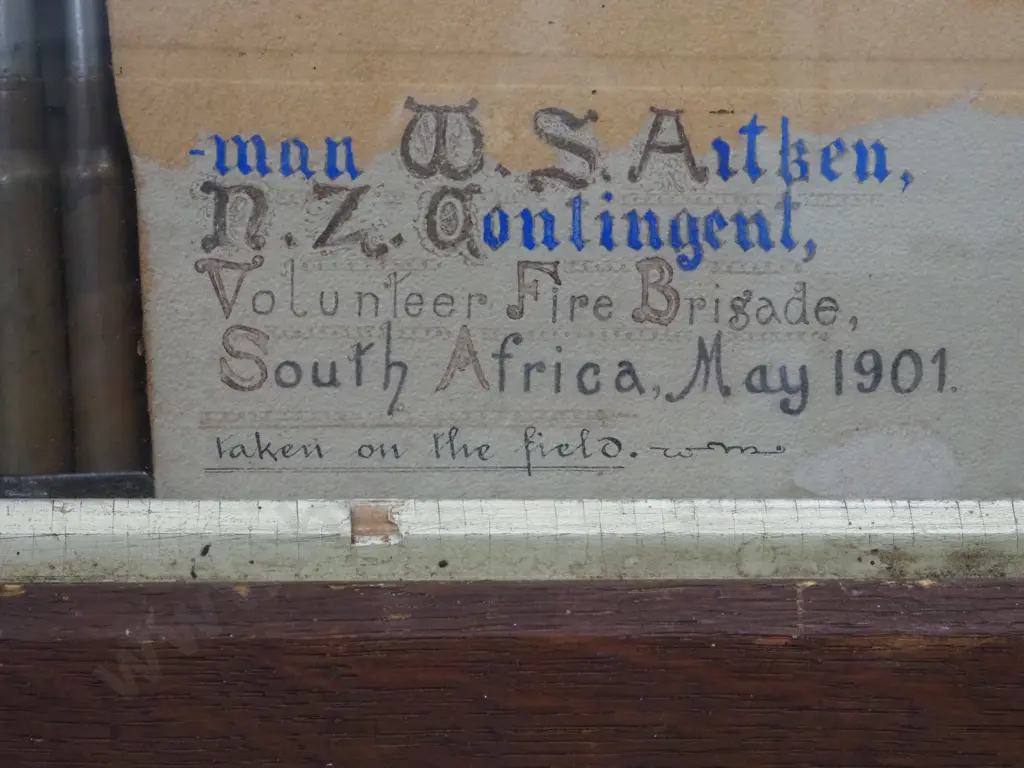 -man W. S. Aitken,
N. Z. Contingent,
Volunteer Fire Brigade,
South Africa, May 1901.
taken on the field.